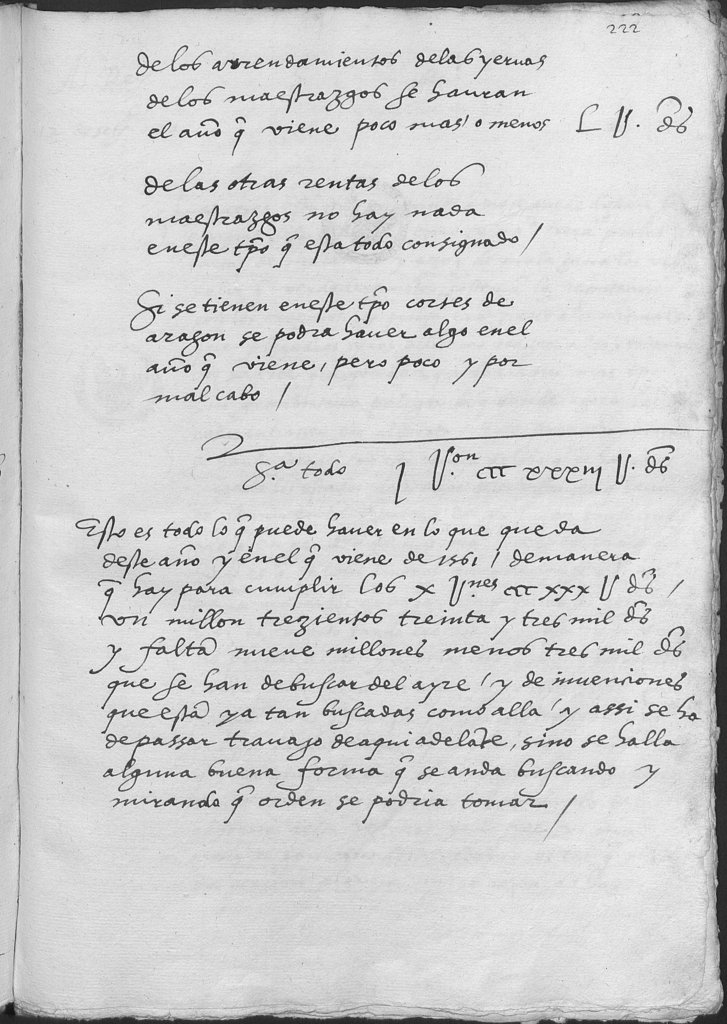 222
delos arrendamientos delas yeruas
delos maestrazgos se hauran
el año q̃ viene poco mas o menos L U. dꝭ
delas otras rentas delos
maestrazgos no hay nada
eneste tp̃o q̃ esta todo consignado /
Si se tienen eneste tp̃o cortes de
aragon se podra hauer algo enel
año q̃ viene, pero poco y por
mal cabo /
S.ª todo j U.on ccc xxxiij U. dꝭ
Esto es todo lo q̃ puede hauer en lo que queda
deste año y enel q̃ viene de 1561 / demanera
q̃ hay para cumplir los x U.nes ccc xxx U dꝭ /
vn millon trezientos treinta y tres mil dꝭ
y faltã nueue millones menos tres mil dꝭ
que se han debuscar del ayre / y de inuenciones
que estã ya tan buscadas como alla / y assi se ha
depassar trauajo deaqui adelãte, sino se halla
alguna buena forma q̃ se anda buscando y
mirando q̃ orden se podria tomar /